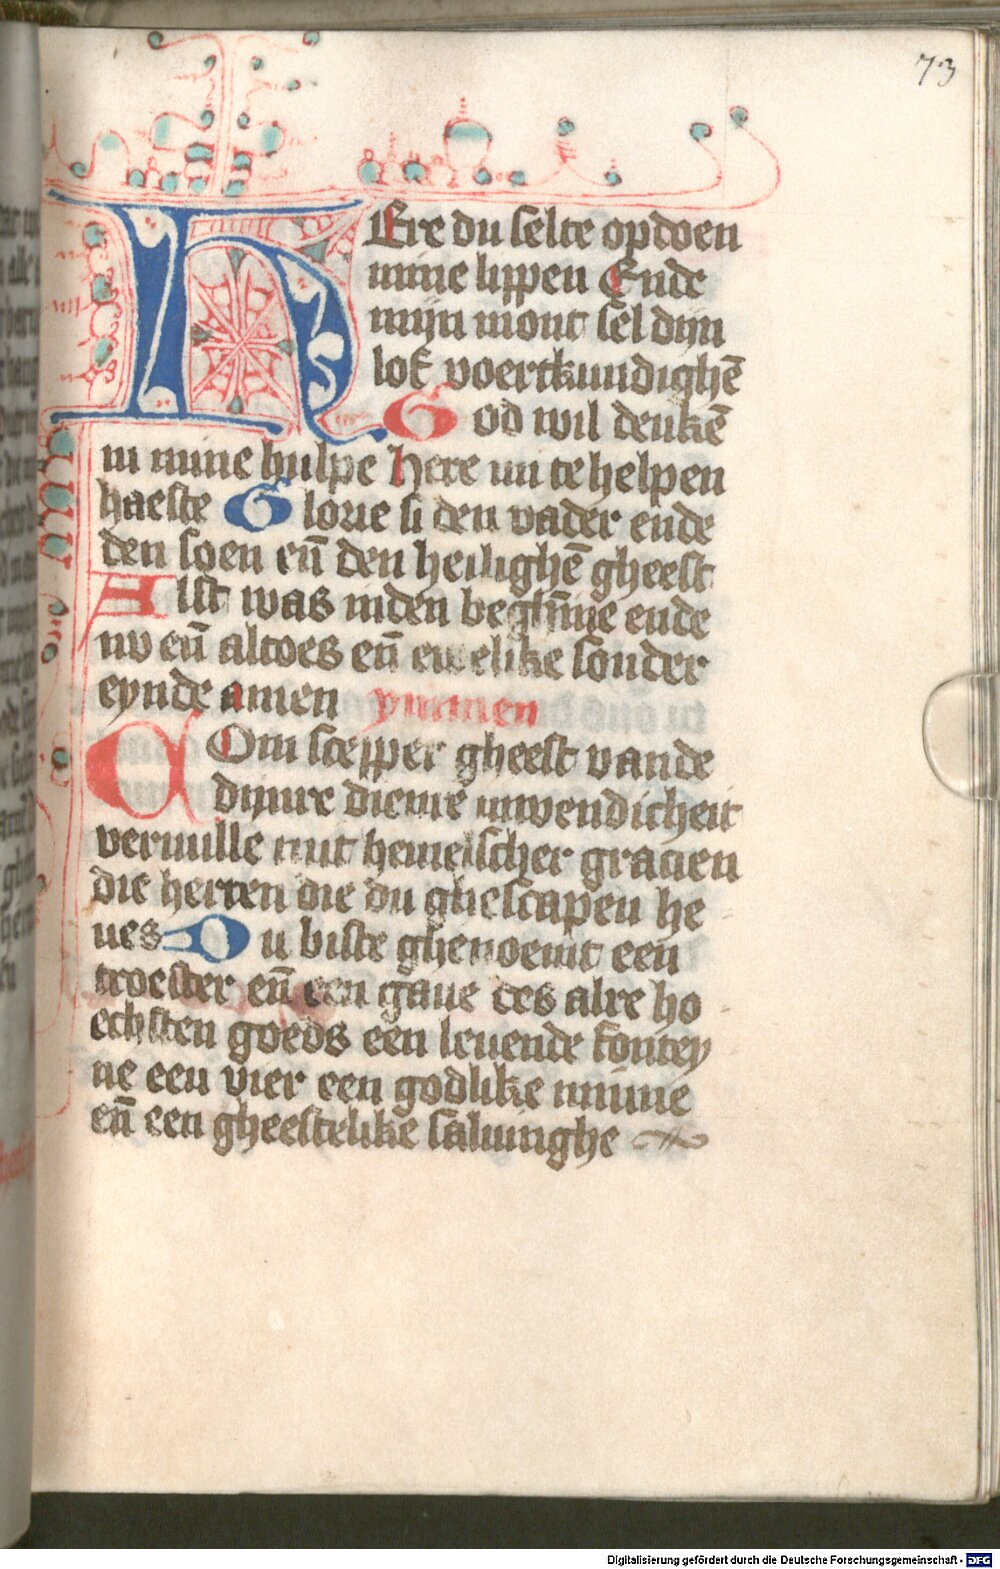 73
HEre du selte opdoen
mine lippen Ende
mijn mont sel dijn
lof voertkundighē
God wil denkē
in mine hulpe here mi te helpen
haeste Glorie si den vader ende
den soen eñ den heilighē gheest
Alst was inden beghīne ende
nv eñ altoes eñ ewelike sonder
eynde amen ymmen
COm scepper gheest vande
dijnre dienre inwendicheit
veruulle mit hemelscher gracien
die herten die du ghescapen he
ues Du biste ghenoemt een
troester eñ een gaue des alre ho
echsten goeds een leuende fontey
ne een vier een godlike minne
eñ een gheestelike saluinghe
Digitalisierung gefördert durch die Deutsche Forschungsgemeinschaft - DFG